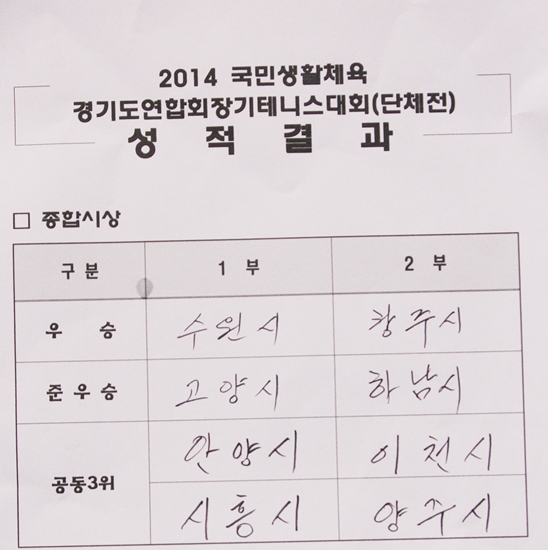 2014 국민생활체육
경기도연합회장기테니스대회(단체전)
성 적 결 과
□ 종합시상
구 분 1 부 2 부
우 승 수원시 광주시
준우승 고양시 하남시
안양시 이천시
공동3위
시흥시 양주시